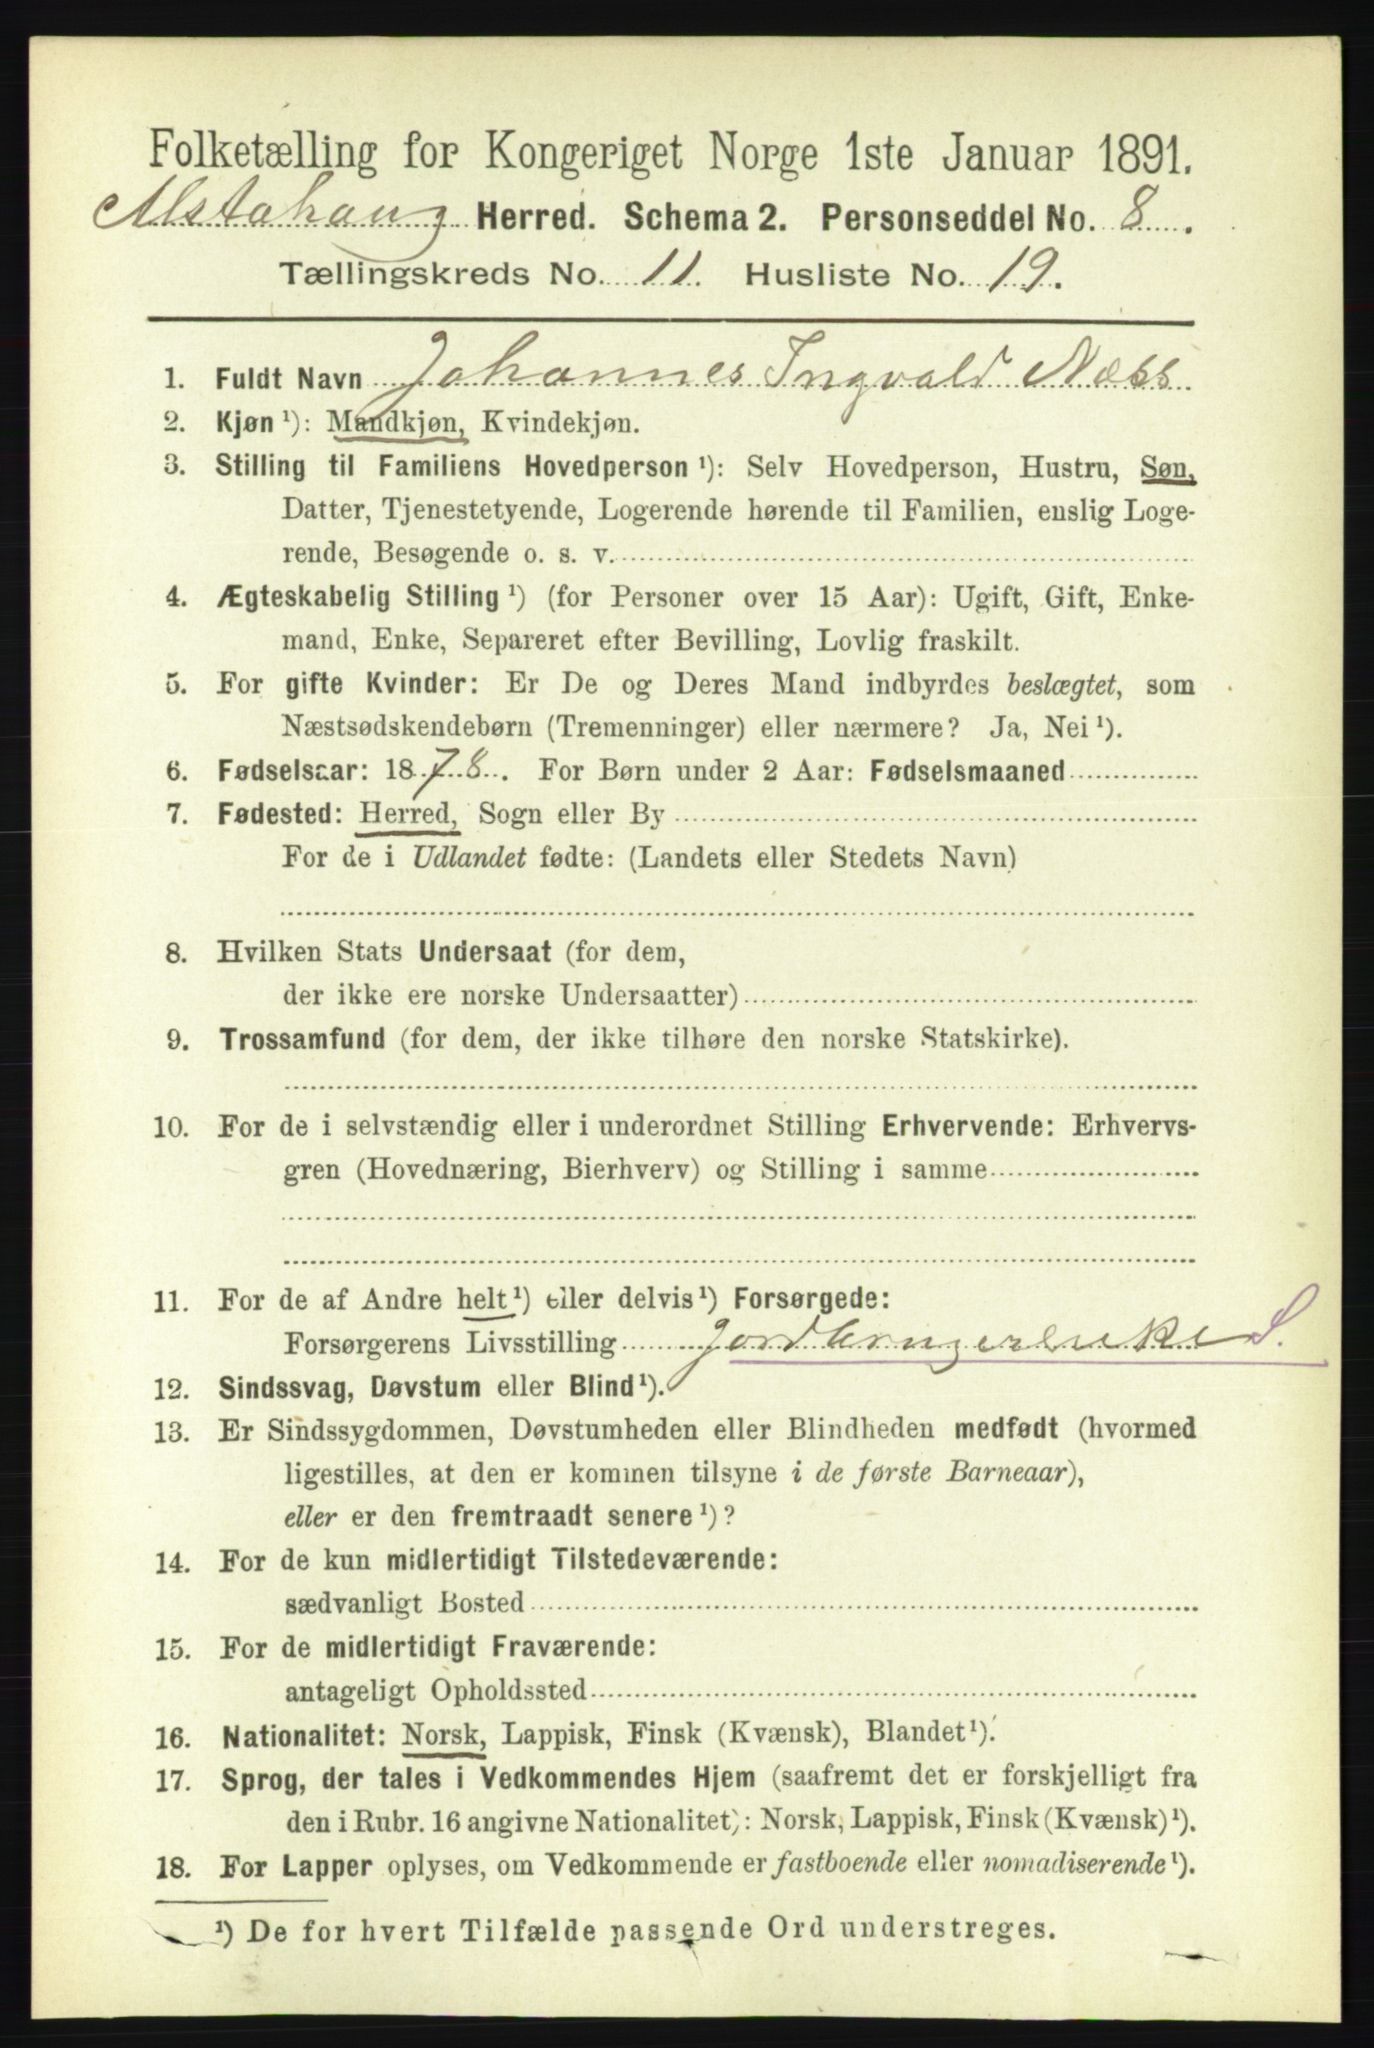 Folketælling for Kongeriget Norge 1ste Januar 1891.
Alstahaug Herred. Schema 2. Personseddel No. 8.
Tællingskreds No. 11. Husliste No. 19.
1. Fuldt Navn Johannes Ingvald Næss
2. Kjøn ¹): Mandkjøn, Kvindekjøn.
3. Stilling til Familiens Hovedperson ¹): Selv Hovedperson, Hustru, Søn,
Datter, Tjenestetyende, Logerende hørende til Familien, enslig Loge-
rende, Besøgende o. s. v.
4. Ægteskabelig Stilling ¹) (for Personer over 15 Aar): Ugift, Gift, Enke-
mand, Enke, Separeret efter Bevilling, Lovlig fraskilt.
5. For gifte Kvinder: Er De og Deres Mand indbyrdes beslægtet, som
Næstsødskendebørn (Tremenninger) eller nærmere? Ja, Nei ¹).
6. Fødselsaar: 1878. For Børn under 2 Aar: Fødselsmaaned
7. Fødested: Herred, Sogn eller By
For de i Udlandet fødte: (Landets eller Stedets Navn)
8. Hvilken Stats Undersaat (for dem,
der ikke ere norske Undersaatter)
9. Trossamfund (for dem, der ikke tilhøre den norske Statskirke).
10. For de i selvstændig eller i underordnet Stilling Erhvervende: Erhvervs-
gren (Hovednæring, Bierhverv) og Stilling i samme
11. For de af Andre helt ¹) eller delvis ¹) Forsørgede:
Forsørgerens Livsstilling Jordbrugerenke S.
12. Sindssvag, Døvstum eller Blind ¹).
13. Er Sindssygdommen, Døvstumheden eller Blindheden medfødt (hvormed
ligestilles, at den er kommen tilsyne i de første Barneaar),
eller er den fremtraadt senere ¹)?
14. For de kun midlertidigt Tilstedeværende:
sædvanligt Bosted
15. For de midlertidigt Fraværende:
antageligt Opholdssted
16. Nationalitet: Norsk, Lappisk, Finsk (Kvænsk), Blandet ¹).
17. Sprog, der tales i Vedkommendes Hjem (saafremt det er forskjelligt fra
den i Rubr. 16 angivne Nationalitet): Norsk, Lappisk, Finsk (Kvænsk) ¹).
18. For Lapper oplyses, om Vedkommende er fastboende eller nomadiserende ¹).
¹) De for hvert Tilfælde passende Ord understreges.